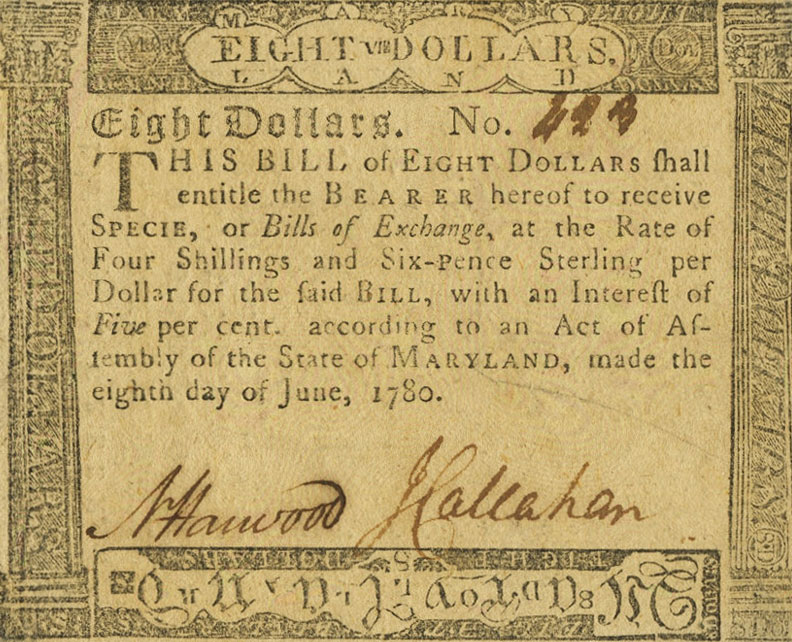 MARY
EIGHT VIII DOLLARS.
LAND
Eight Dollars. No.
THIS BILL of EIGHT DOLLARS ſhall
entitle the BEARER hereof to receive
SPECIE, or Bills of Exchange, at the Rate of
Four Shillings and Six-pence Sterling per
Dollar for the ſaid BILL, with an Intereſt of
Five per cent. according to an Act of Aſ-
ſembly of the State of MARYLAND, made the
eighth day of June, 1780.
N Harwood J Callahan
EIGHT DOLLARS
EIGHT DOLLARS